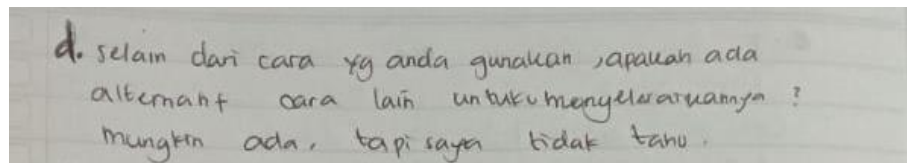 d. selain dari cara yg anda gunakan, apakah ada
alternatif cara lain untuk menyelesaikannya ?
mungkin ada, tapi saya tidak tahu.